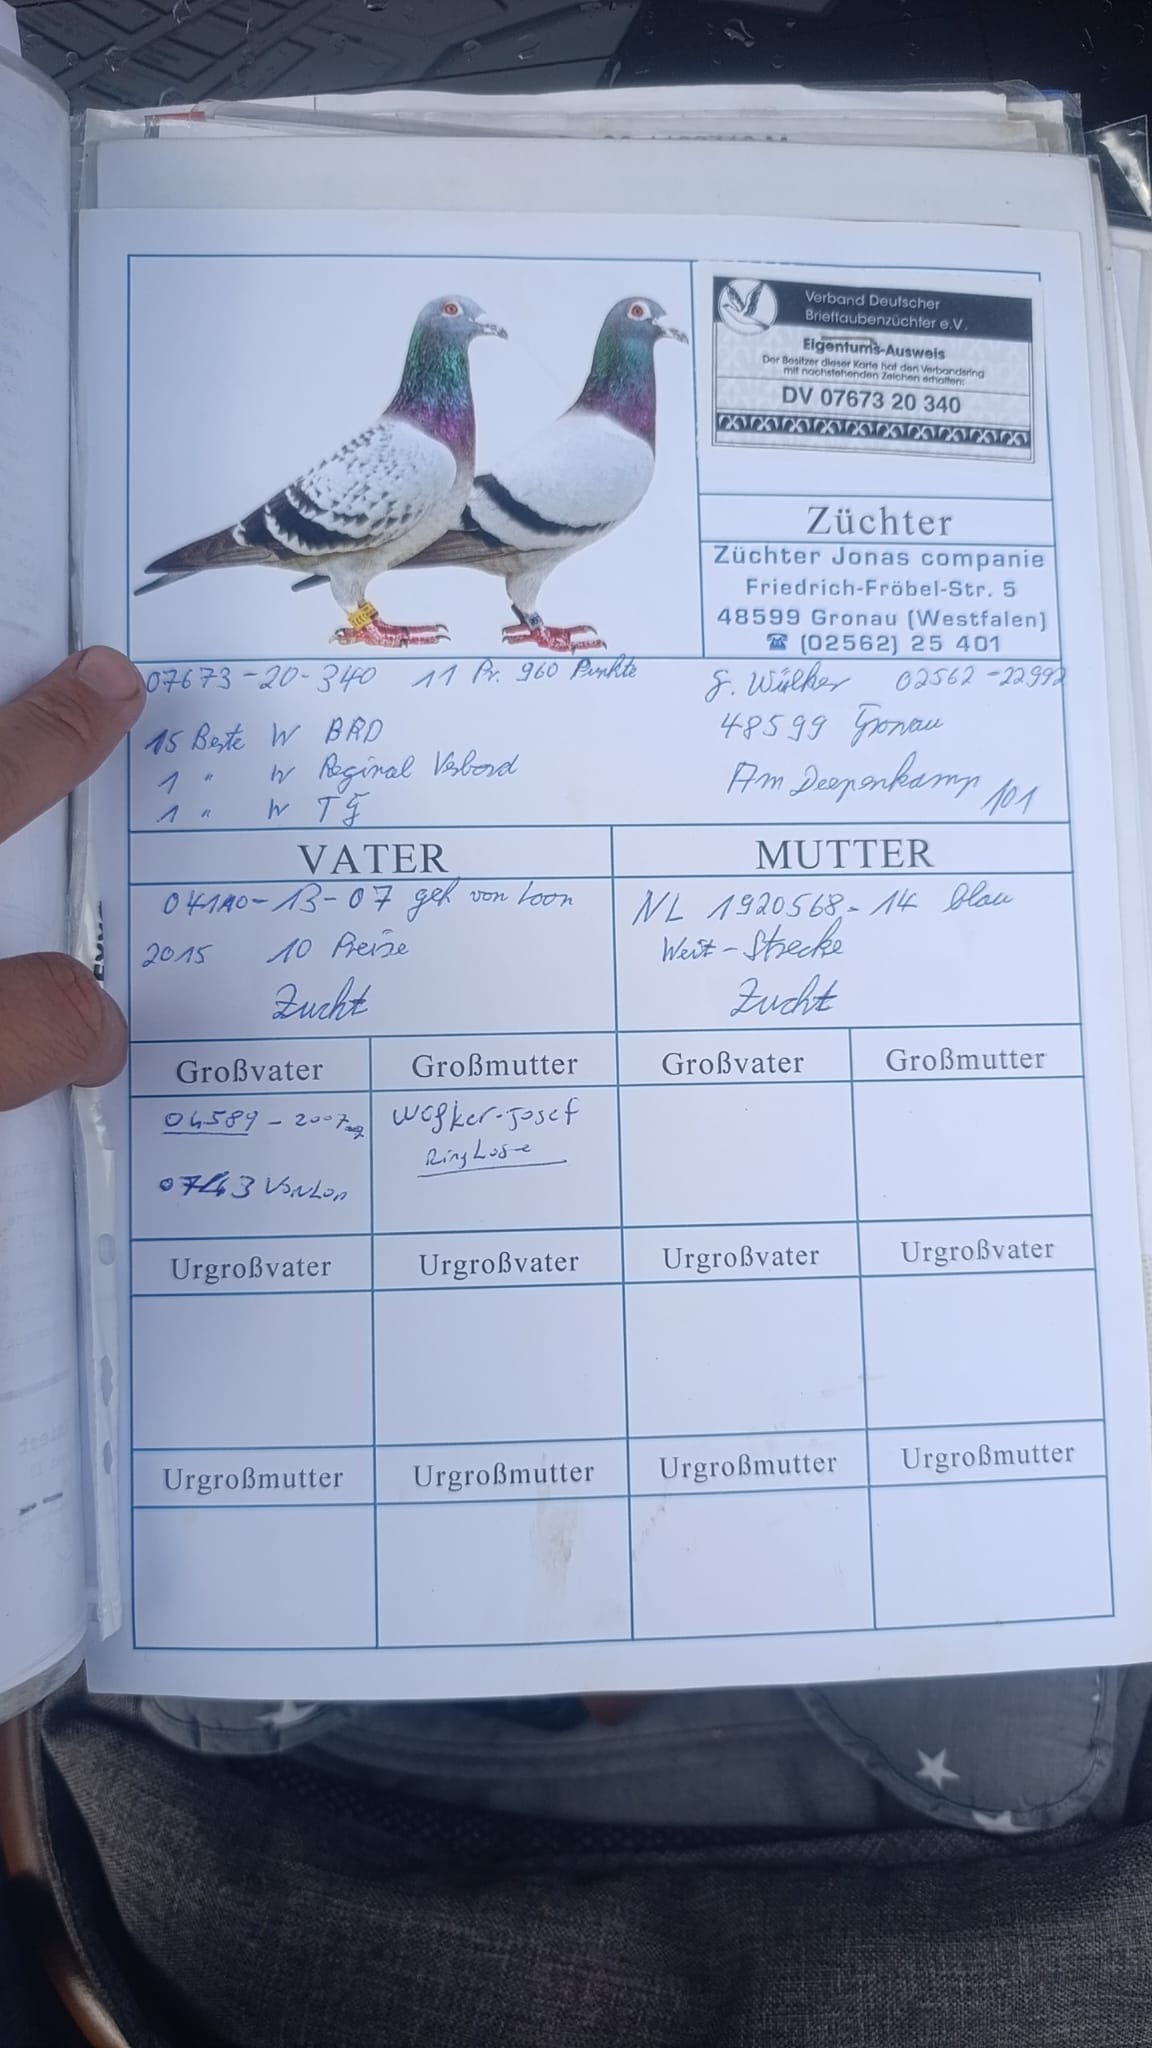 Verband Deutscher
Brieftaubenzüchter e.V.
Eigentums-Ausweis
Der Besitzer dieser Karte hat den Verbandsring
mit nachstehenden Zeichen erhalten:
DV 07673 20 340
Züchter
Züchter Jonas companie
Friedrich-Fröbel-Str. 5
48599 Gronau (Westfalen)
☎ (02562) 25 401
07673-20-340 11 Pr. 960 Punkte
15 Beste W BRD
1 " W Reginal Verband
1 " W TG
G. Wülker 02562-22992
48599 Gronau
Am Deepenkamp 101
VATER
MUTTER
-13-07 von Loon
2015 10 Preise
Zucht
NL 1920568-14 blau
Weit-Strecke
Zucht
Großvater
Großmutter
Großvater
Großmutter
04589-2007
0743 VanLon
Josef
RingLose
Urgroßvater
Urgroßvater
Urgroßvater
Urgroßvater
Urgroßmutter
Urgroßmutter
Urgroßmutter
Urgroßmutter